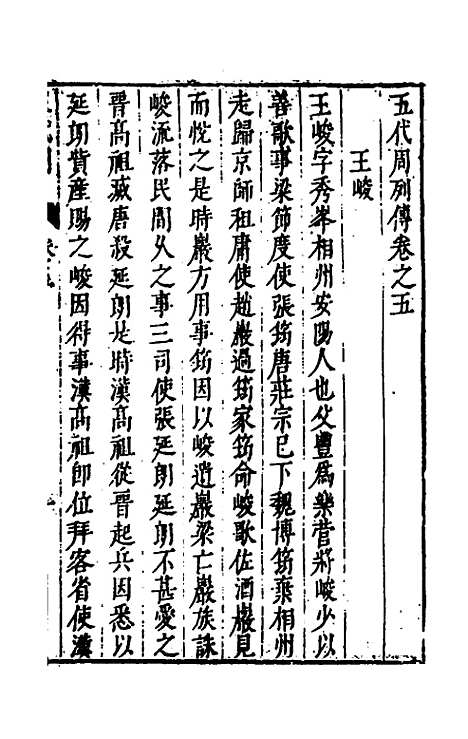 五代周列傳卷之五
王峻
王峻字秀峯相州安陽人也父豐為樂營將峻少以
善歌事梁節度使張筠唐莊宗已下魏博筠棄相州
走歸京師租庸使趙巖過筠家筠命峻歌佐酒巖見
而悅之是時巖方用事筠因以峻遺巖梁亡巖族誅
峻流落民間久之事三司使張延朗延朗不甚愛之
晋髙祖滅唐殺延朗是時漢髙祖從晋起兵因悉以
延朗貲産賜之峻因得事漢髙祖即位拜客省使漢